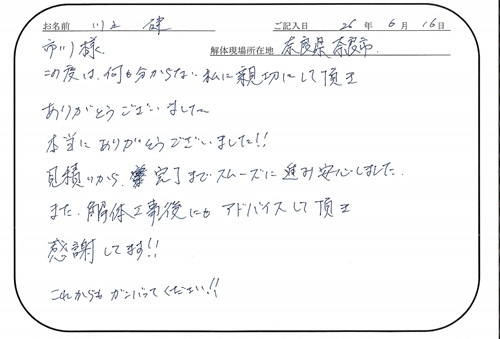 お名前 川上 健 ご記入日 26年 6月 16日
市川様 解体現場所在地 奈良県奈良市
この度は、何も分からない私に親切にして頂き
ありがとうございました
本当にありがとうございました!!
見積りから、完了までスムーズに進み安心しました.
また、解体工事後にもアドバイスして頂き
感謝してます!!
これからもガンバってください!!